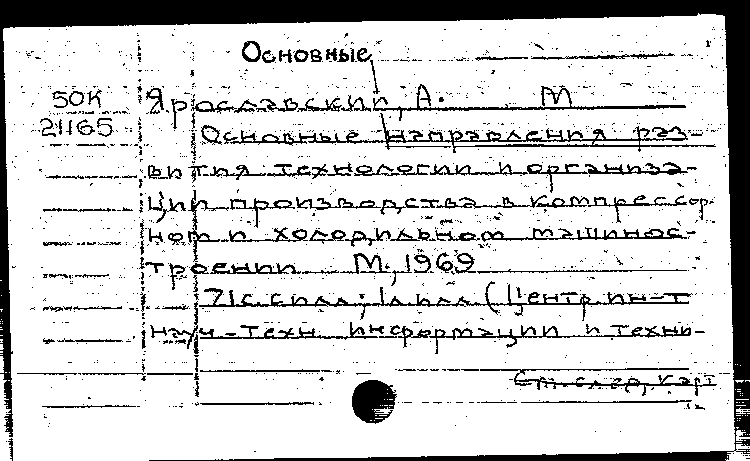 Основные
50К Ярославский, А. М
21165 Основные направления раз-
вития технологии и организа-
ции производства в компрессор-
ном и холодильном машинос-
троении М., 1969
71с. с илл; 1л илл (Центр. ин-т
науч.-техн. информации и техни-
См. след. карт